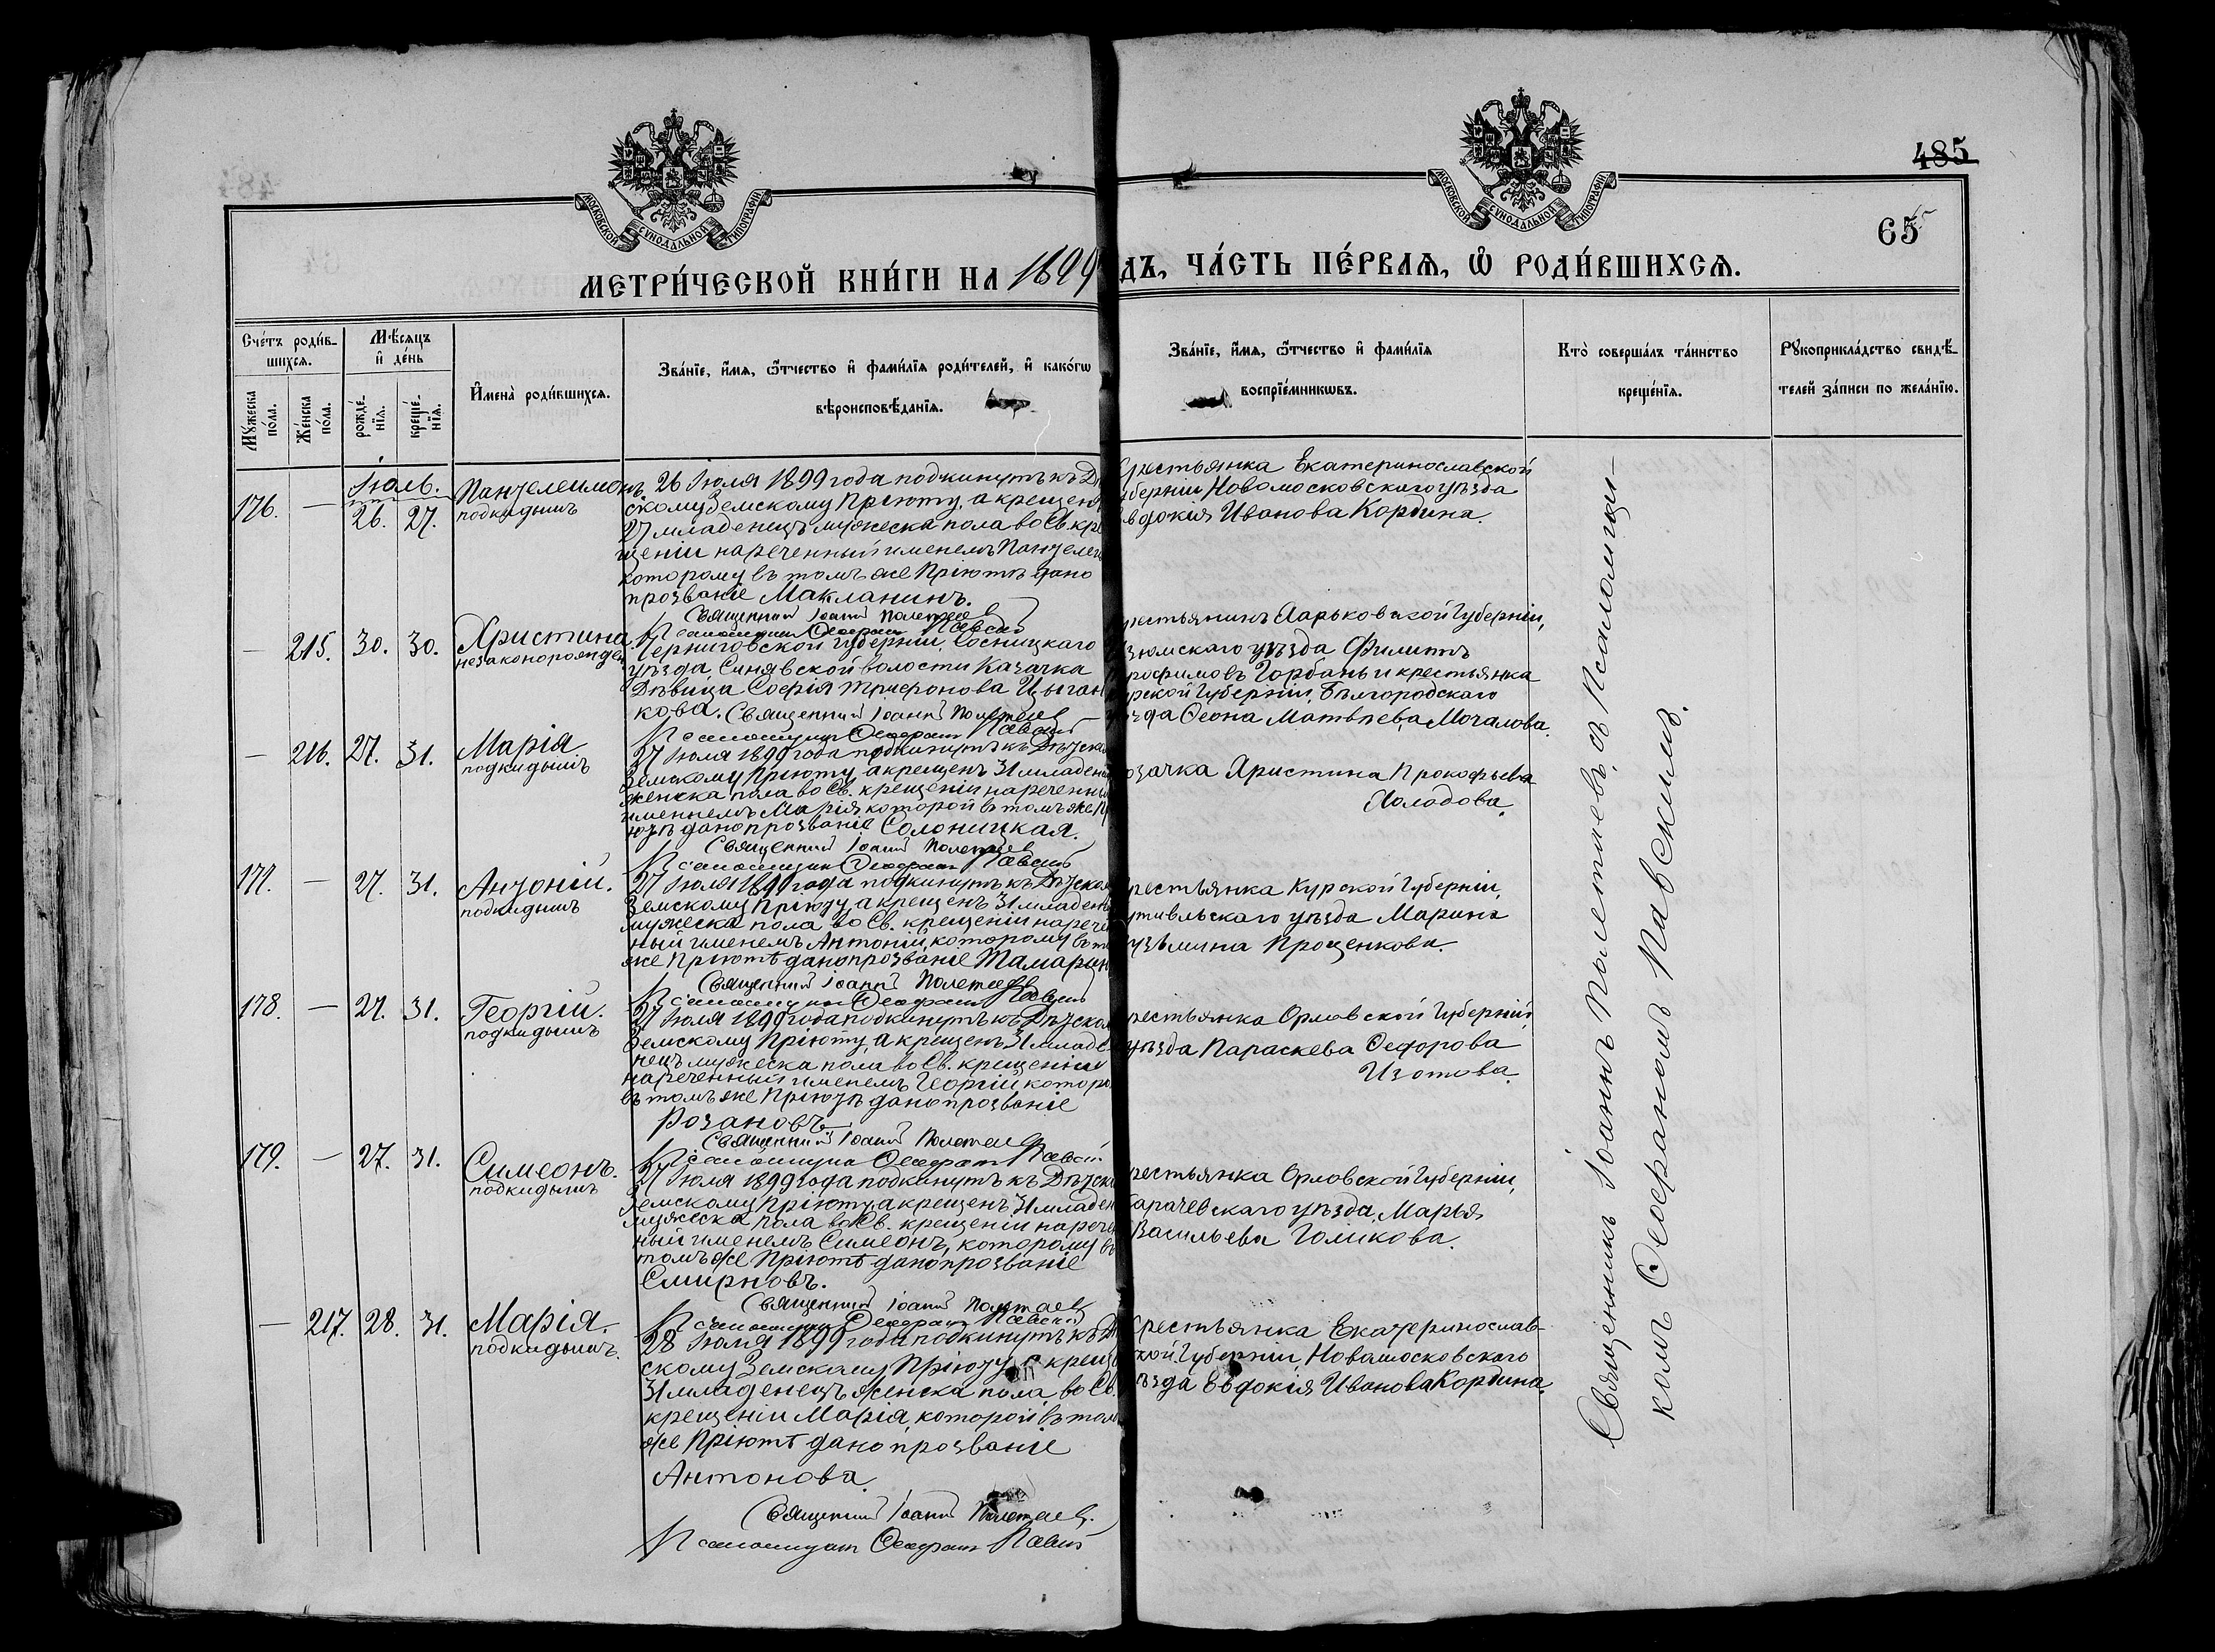 485
65
МОСКОВСКОЙ СѴНОДАЛЬНОЙ ТИПОГРАФІИ
МОСКОВСКОЙ СѴНОДАЛЬНОЙ ТИПОГРАФІИ
МЕТРИ́ЧЕСКОЙ КНИ́ГИ НА 1899
ДЪ, ЧА́СТЬ ПЕ́РВАѦ, Ѽ РОДИ́ВШИХСѦ.
Сче́тъ роди́в-
шихсѧ.
Мꙋжеска по́ла.
Же́нска по́ла.
Мѣ́сѧцъ
и҆ де́нь
рожде́-
нїѧ.
креще́-
нїѧ.
И҆мена̀ роди́вшихсѧ.
Зва́нїе, и҆́мѧ, ѻ҆́тчество и҆ фами́лїѧ роди́телей, и҆ како́гѡ
вѣроисповѣ́данїѧ.
Зва́нїе, и҆́мѧ, ѻ҆́тчество и҆ фами́лїѧ
воспрїе́мникѡвъ.
Кто̀ соверша́лъ та́инство
креще́нїѧ.
Рꙋкоприкла́дство свидѣ́-
телей за́писи по жела́нїю.
Іюль.
176. — 26. 27.
Пантелеимонъ.
подкидышъ
26 Іюля 1899 года подкинутъ къ Дѣ
скому Земскому Пріюту, а крещенъ
27 младенецъ мужеска пола во Св. кре
щеніи нареченный именемъ Пантелеи
которому въ томъ же Пріютѣ дано
прозваніе Макланинъ.
Священникъ Іоаннъ Полетаев
Псаломщикъ Ѳеофанъ Павскій
рестьянка Екатеринославской
уберніи Новомосковскаго уѣзда
вдокія Иванова Кордина.
— 215. 30. 30.
Христина
незаконорожден
Черниговской губерніи, Сосницкаго
уѣзда, Синявской волости Казачка
Дѣвица Софія Трифонова Цыган
кова. Священникъ Іоаннъ Полетаев
Псаломщикъ Ѳеофанъ Павскій
рестьянинъ Харьковской Губерніи,
зюмскаго уѣзда Филиппъ
рофимовъ Горбань и крестьянка
урской Губерніи, Бѣлгородскаго
ѣзда Ѳеона Матвѣева Мочалова.
— 216. 27. 31.
Марія
подкидышъ
27 Іюля 1899 года подкинутъ къ Дѣтском
Земскому Пріюту, а крещенъ 31 младене
женска пола во Св. крещеніи нареченны
именемъ Марія, которой въ томъ же Пр
ютѣ дано прозваніе Солоницкая.
Священникъ Іоаннъ Полетаев
Псаломщикъ Ѳеофанъ Павскій
озачка Христина Прокофьева
Холодова.
177. — 27. 31.
Антоній.
подкидышъ
27 Іюля 1899 года подкинутъ къ Дѣтском
Земскому Пріюту, а крещенъ 31 младене
мужеска пола во Св. крещеніи нарече
ный именемъ Антоній, которому въ т
же Пріютѣ дано прозваніе Тамарин
Священникъ Іоаннъ Полетаев
Псаломщикъ Ѳеофанъ Павскій
рестьянка Курской Губерніи,
утивльскаго уѣзда Марина
узьмина Прощенкова.
178. — 27. 31.
Георгій.
подкидышъ
27 Іюля 1899 года подкинутъ къ Дѣтском
Земскому Пріюту, а крещенъ 31 младе
нецъ мужеска пола во Св. крещеніи
нареченный именемъ Георгій котором
въ томъ же Пріютѣ дано прозваніе
Розановъ.
Священникъ Іоаннъ Полетаев
Псаломщикъ Ѳеофанъ Павскій
рестьянка Орловской Губерніи,
уѣзда Параскева Ѳедорова
Изотова.
179. — 27. 31.
Симеонъ.
подкидышъ
27 Іюля 1899 года подкинутъ къ Дѣтско
Земскому Пріюту, а крещенъ 31 младен
мужеска пола во Св. крещеніи нарече
ный именемъ Симеонъ, которому въ
томъ же Пріютѣ дано прозваніе
Смирновъ.
Священникъ Іоаннъ Полетаев
Псаломщикъ Ѳеофанъ Павскій
рестьянка Орловской Губерніи,
Карачевскаго уѣзда, Марья
Васильева Голикова.
— 217. 28. 31.
Марія.
подкидышъ.
28 Іюля 1899 года подкинутъ къ Дѣ
скому Земскому Пріюту а креще
31 младенецъ женска пола во Св.
крещеніи Марія, которой въ том
же Пріютѣ дано прозваніе
Антонова.
Священникъ Іоаннъ Полетаев.
Псаломщикъ Ѳеофанъ Павскій
Крестьянка Екатеринослав-
кой Губерніи, Новомосковскаго
ѣзда Евдокія Иванова Кордина.
Священникъ Іоаннъ Полетаевъ, съ Псаломщи-
комъ Ѳеофаномъ Павскимъ.